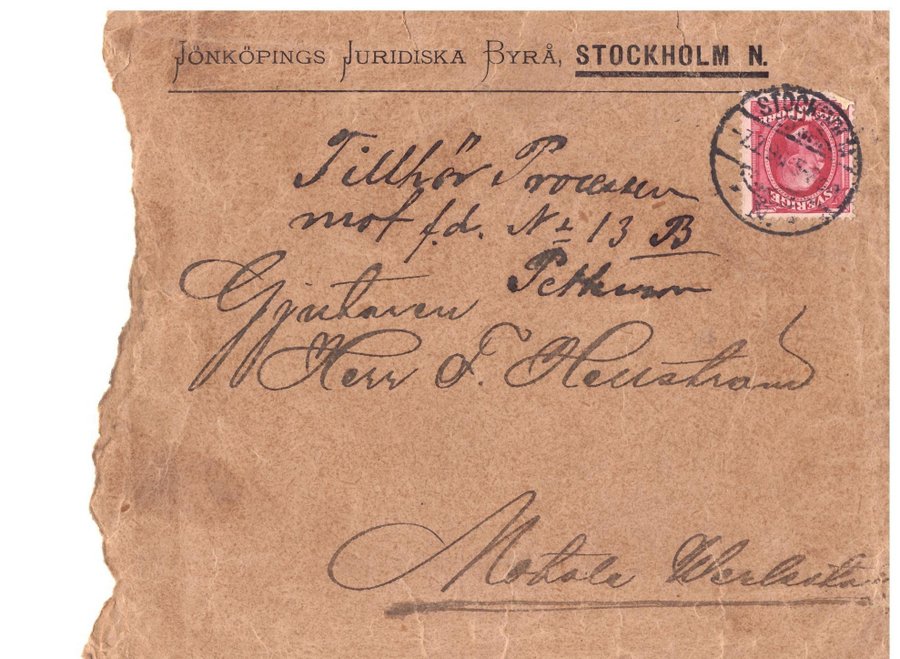 JÖNKÖPINGS JURIDISKA BYRÅ, STOCKHOLM N.
STOCKHOLM
SVERIGE
Tillhör Processen
mot f.d. No 13 B
Pettersson
Gjutaren
Herr F. Hellstrand
Motala Werkstad